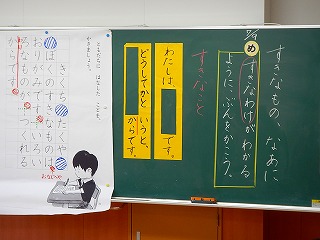 すきなもの、なあに
2/9
め
すきなわけがわかる
ように、ぶんをかこう。
すきなこと
わたしは、
です。
どうしてかというと、
からです。
ともだちに はなしたことを、
かきましょう。
きくち たくや
ぼくのすきなものは、
おりがみです。いろい
ろなものが、つくれる
からです。